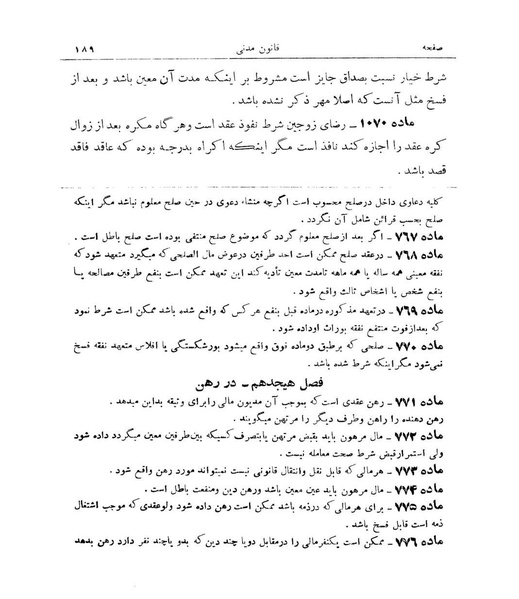 صفحه قانون مدنی ۱۸۹
شرط خیار نسبت بصداق جایز است مشروط بر اینکه مدت آن معین باشد و بعد از
فسخ مثل آنست که اصلا مهر ذکر نشده باشد .
ماده ۱۰۷۰ ـ رضای زوجین شرط نفوذ عقد است وهرگاه مکره بعد از زوال
کره عقد را اجازه کند نافذ است مگر اینکه اکراه بدرجه بوده که عاقد فاقد
قصد باشد .
کلیه دعاوی داخل درصلح محسوب است اگرچه منشاء دعوی در حین صلح معلوم نباشد مگر اینکه
صلح بحسب قرائن شامل آن نگردد .
ماده ۷۶۷ ـ اگر بعد ازصلح معلوم گردد که موضوع صلح منتفی بوده است صلح باطل است .
ماده ۷۶۸ ـ درعقد صلح ممکن است احد طرفین درعوض مال الصلحی که میگیرد متعهد شود که
نفقه معینی همه ساله یا همه ماهه تامدت معین تأدیه کند این تعهد ممکن است بنفع طرفین مصالحه یا
بنفع شخص یا اشخاص ثالث واقع شود .
ماده ۷۶۹ ـ درتعهد مذکوره درماده قبل بنفع هر کس که واقع شده باشد ممکن است شرط نمود
که بعدازفوت منتفع نفقه بوراث اوداده شود .
ماده ۷۷۰ ـ صلحی که برطبق دوماده فوق واقع میشود بورشکستگی یا افلاس متعهد نفقه فسخ
نمی‌شود مگراینکه شرط شده باشد .
فصل هیجدهم ـ در رهن
ماده ۷۷۱ ـ رهن عقدی است که بموجب آن مدیون مالی رابرای وثیقه بداین میدهد .
رهن دهنده را راهن وطرف دیگر را مرتهن میگویند .
ماده ۷۷۲ ـ مال مرهون باید بقبض مرتهن یابتصرف کسیکه بین‌طرفین معین میگردد داده شود
ولی استمرارقبض شرط صحت معامله نیست .
ماده ۷۷۳ ـ هرمالی که قابل نقل وانتقال قانونی نیست نمیتواند مورد رهن واقع شود .
ماده ۷۷۴ ـ مال مرهون باید عین معین باشد ورهن دین ومنفعت باطل است .
ماده ۷۷۵ ـ برای هرمالی که درذمه باشد ممکن است رهن داده شود ولوعقدی که موجب اشتغال
ذمه است قابل فسخ باشد .
ماده ۷۷۶ ـ ممکن است یکنفرمالی را درمقابل دویا چند دین که بدو یاچند نفر دارد رهن بدهد